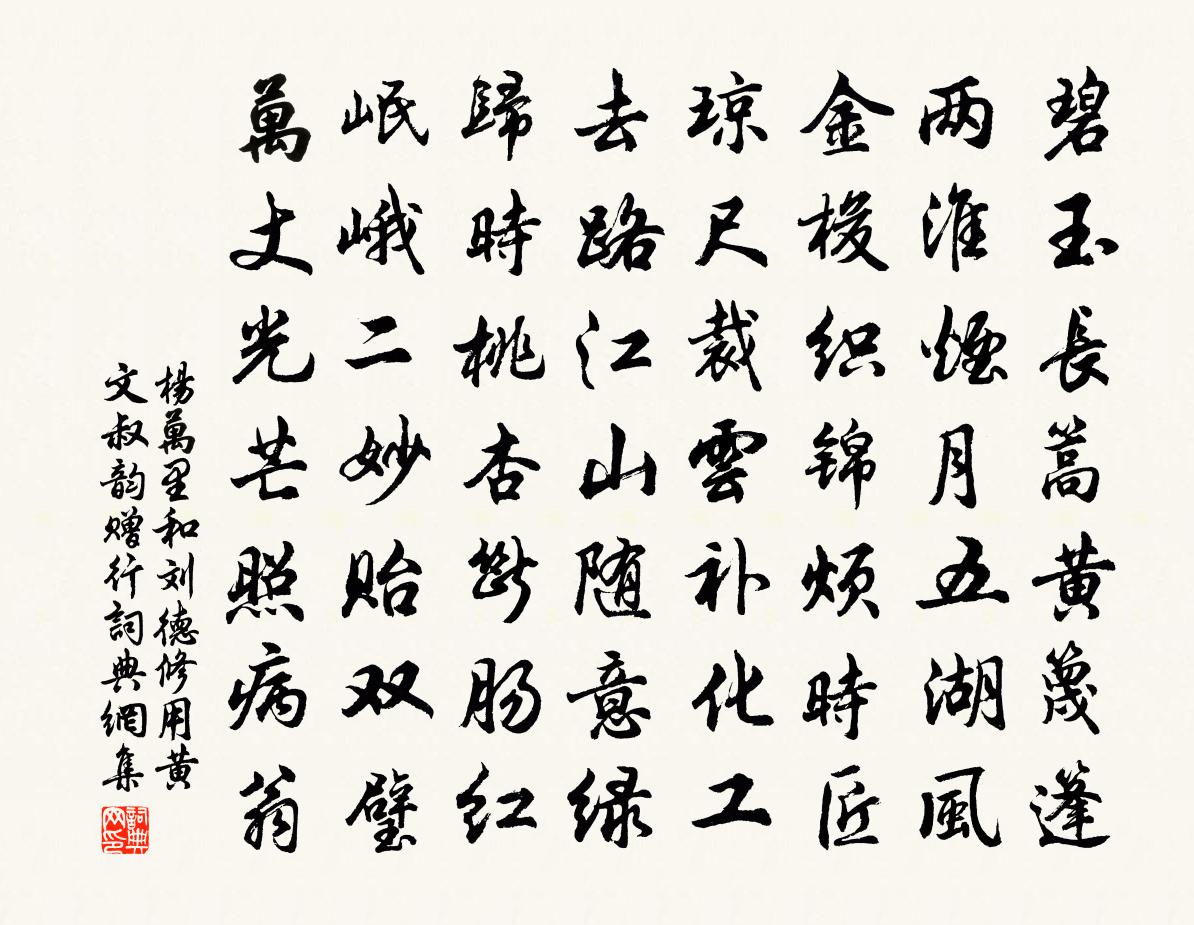 碧玉長篙黃篾篷
两淮煙月五湖風
金梭织锦烦時匠
琼尺裁雲补化工
去路江山随意绿
歸時桃杏斷肠红
岷峨二妙貽双璧
萬丈光芒照病翁
楊萬里和刘德修用黄
文叔韵赠行詞典網集
詞典网印